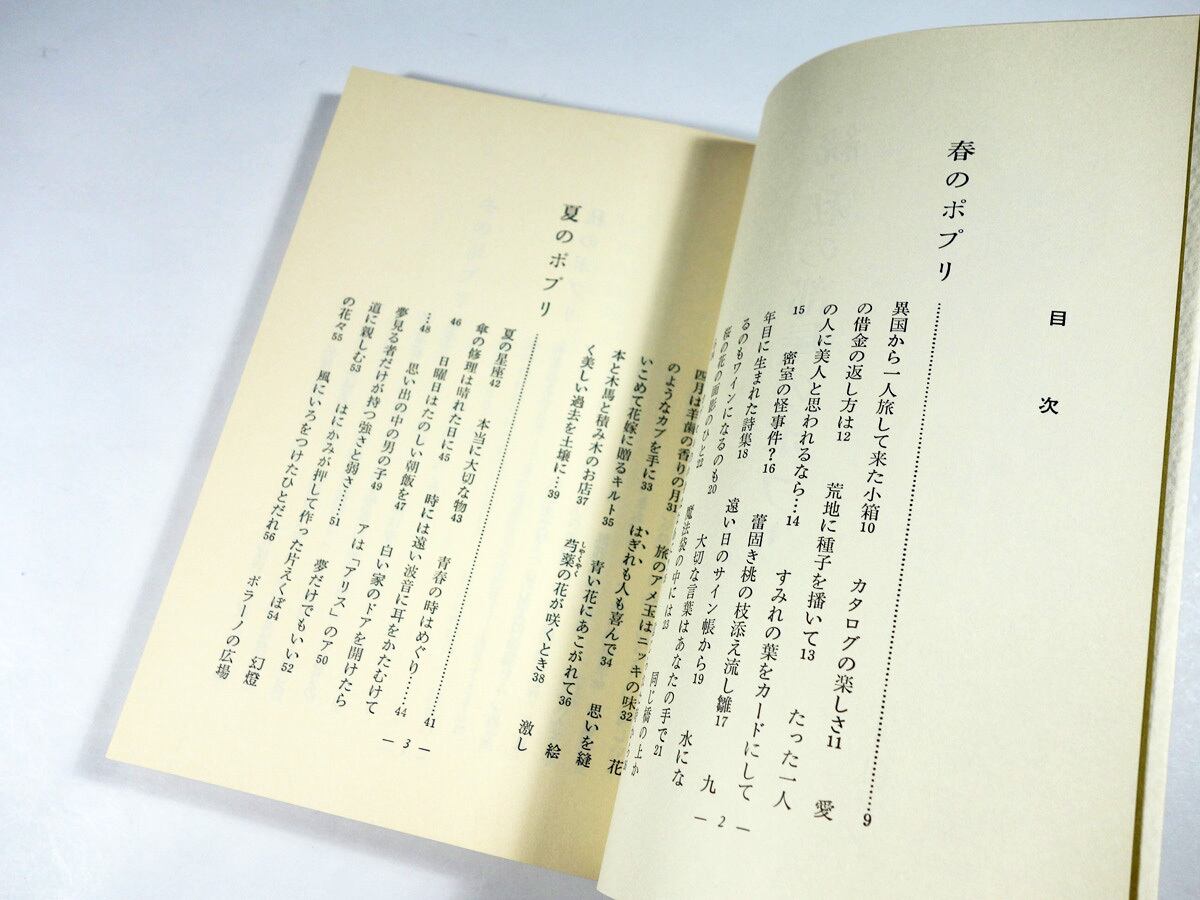 目次
春のポプリ……………………9
異国から一人旅して来た小箱10 カタログの楽しさ11 愛
の借金の返し方は12 荒地に種子を播いて13 たった一人
の人に美人と思われるなら…14 すみれの葉をカードにして
15 密室の怪事件?16 蕾固き桃の枝添え流し雛17 九
年目に生まれた詩集18 遠い日のサイン帳から19 水にな
るのもワインになるのも20 大切な言葉はあなたの手で21
桜の花の面影のひと22 魔法袋の中には23 同じ橋の上か
四月は羊歯の香りの月31 旅のアメ玉はニッキの味32 花
のようなカブを手に33 はぎれも人も喜んで34 思いを縫
いこめて花嫁に贈るキルト35 青い花にあこがれて36 絵
本と木馬と積み木のお店37 芍薬の花が咲くとき38 激し
しゃくやく
く美しい過去を土壌に…39
夏のポプリ……………………41
夏の星座42 本当に大切な物43 青春の時はめぐり……44
傘の修理は晴れた日に45 時には遠い波音に耳をかたむけて
46 日曜日はたのしい朝飯を47 白い家のドアを開けたら
…48 思い出の中の男の子49 アは「アリス」のア50
夢見る者だけが持つ強さと弱さ……51 夢だけでもいい52
道に親しむ53 はにかみが押して作った片えくぼ54 幻燈
の花々55 風にいろをつけたひとだれ56 ポラーノの広場
— 2 —
— 3 —